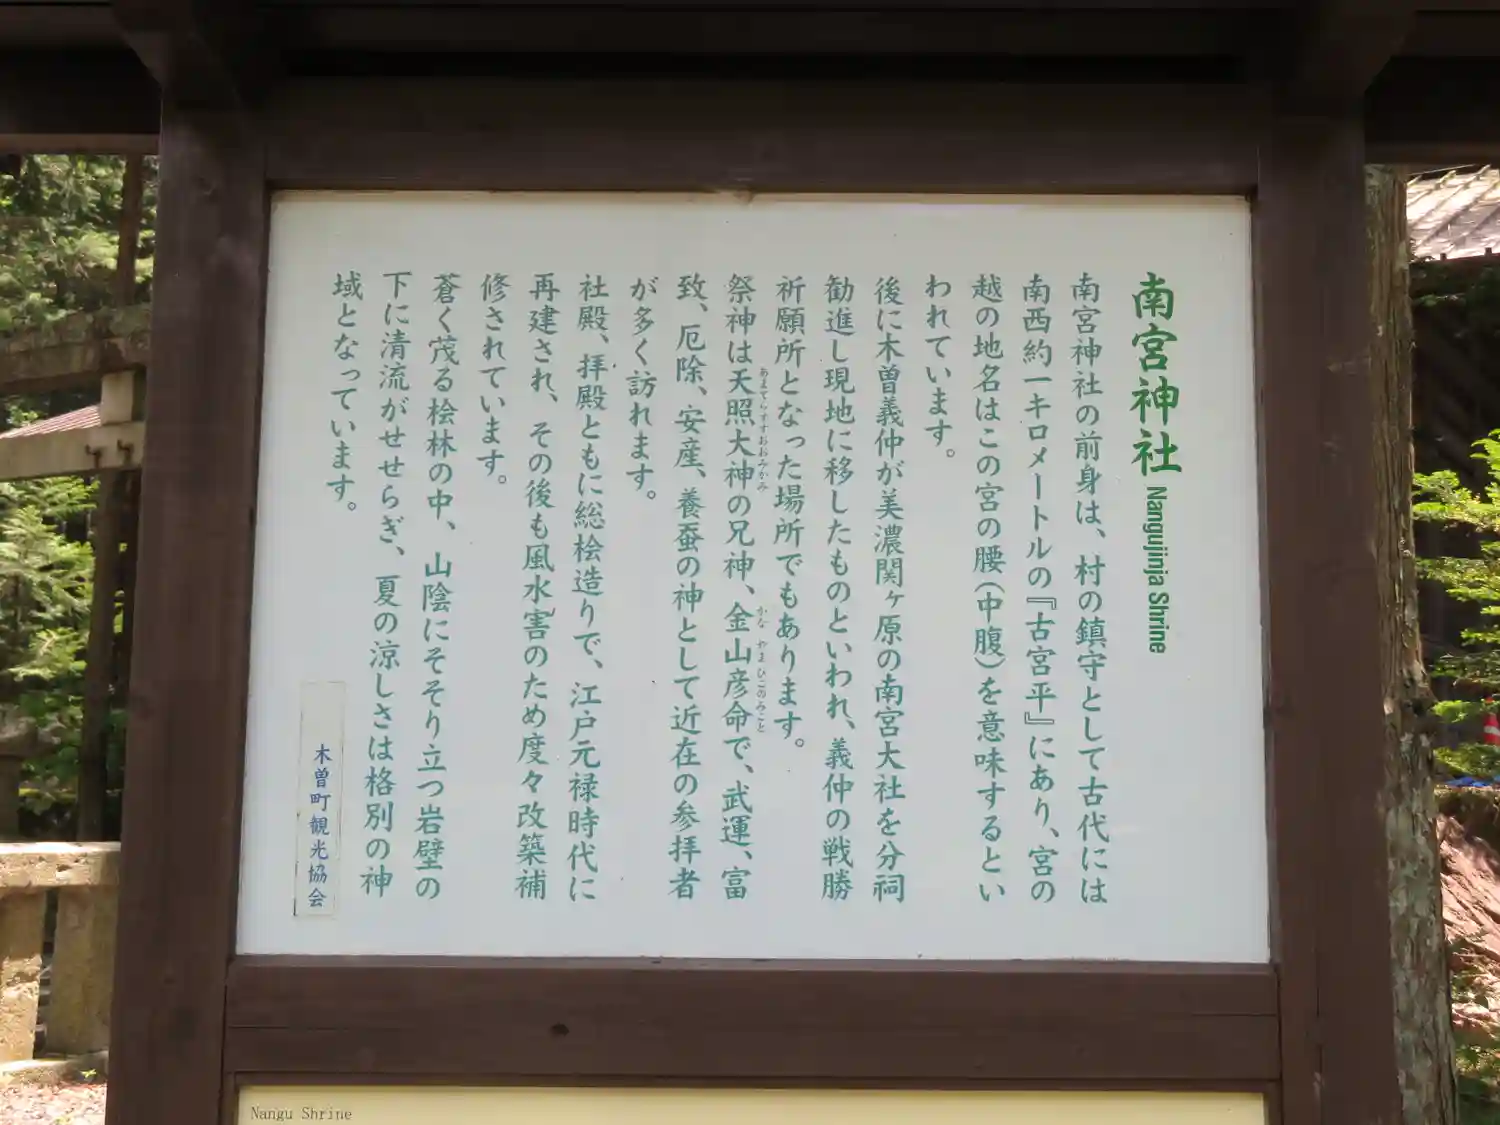 南宮神社 Nangujinja Shrine
南宮神社の前身は、村の鎮守として古代には
南西約一キロメートルの『古宮平』にあり、宮の
越の地名はこの宮の腰(中腹)を意味するとい
われています。
後に木曽義仲が美濃関ヶ原の南宮大社を分祠
勧進し現地に移したものといわれ、義仲の戦勝
祈願所となった場所でもあります。
あまてらすすおおみかみ
祭神は天照大神の兄神、金山彦命で、武運、富
かな やま ひこのみこと
致、厄除、安産、養蚕の神として近在の参拝者
が多く訪れます。
社殿、拝殿ともに総桧造りで、江戸元禄時代に
再建され、その後も風水害のため度々改築補
修されています。
蒼く茂る桧林の中、山陰にそそり立つ岩壁の
下に清流がせせらぎ、夏の涼しさは格別の神
域となっています。
木曽町観光協会
Nangu Shrine